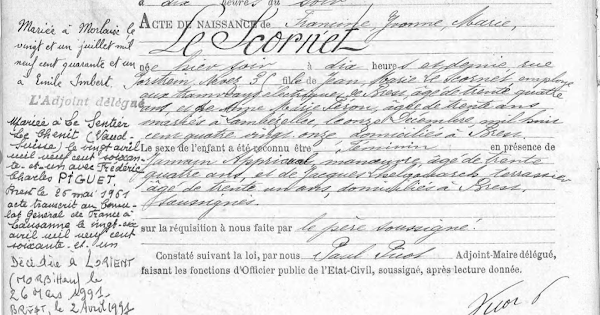 à dix heures du soir
ACTE DE NAISSANCE de Francine Yvonne Marie
Le Scornet
née hier soir à dix heures et demie, rue
fille de Jean Marie le Scornet employé
aux tramways électriques de Brest, âgé de trente quatre
ans, et de Anne Marie âgée de trente ans
mariés à Lambézellec, le onze Décembre, mil huit
cent quatre vingt onze domiciliés à Brest
Le sexe de l'enfant a été reconnu être Féminin en présence de
manœuvre, âgé de trente
quatre ans, et de Jacques terrassier
âgé de trente un ans, domiciliés à Brest
soussignés
sur la réquisition à nous faite par le père soussigné.
Constaté suivant la loi, par nous Paul Adjoint-Maire délégué,
faisant les fonctions d'Officier public de l'Etat-Civil, soussigné, après lecture donnée.
Mariée à Morlaix le
vingt et un juillet mil
neuf cent quarante et un
à Emile Imbert.
L'Adjoint délégué
Mariée à Le Sentier
Le Chenit (Vaud-
Suisse) le vingt avril
mil neuf cent soixan-
te et un avec Frédéric
Charles PIGUET.
Brest le 26 mai 1961
acte transcrit au Consu-
lat Général de France à
Lausanne le vingt-six
avril mil neuf cent
soixante et un
Décédée à LORIENT
(MORBIHAN) le
26 Mars 1991
BREST, le 2 Avril 1991